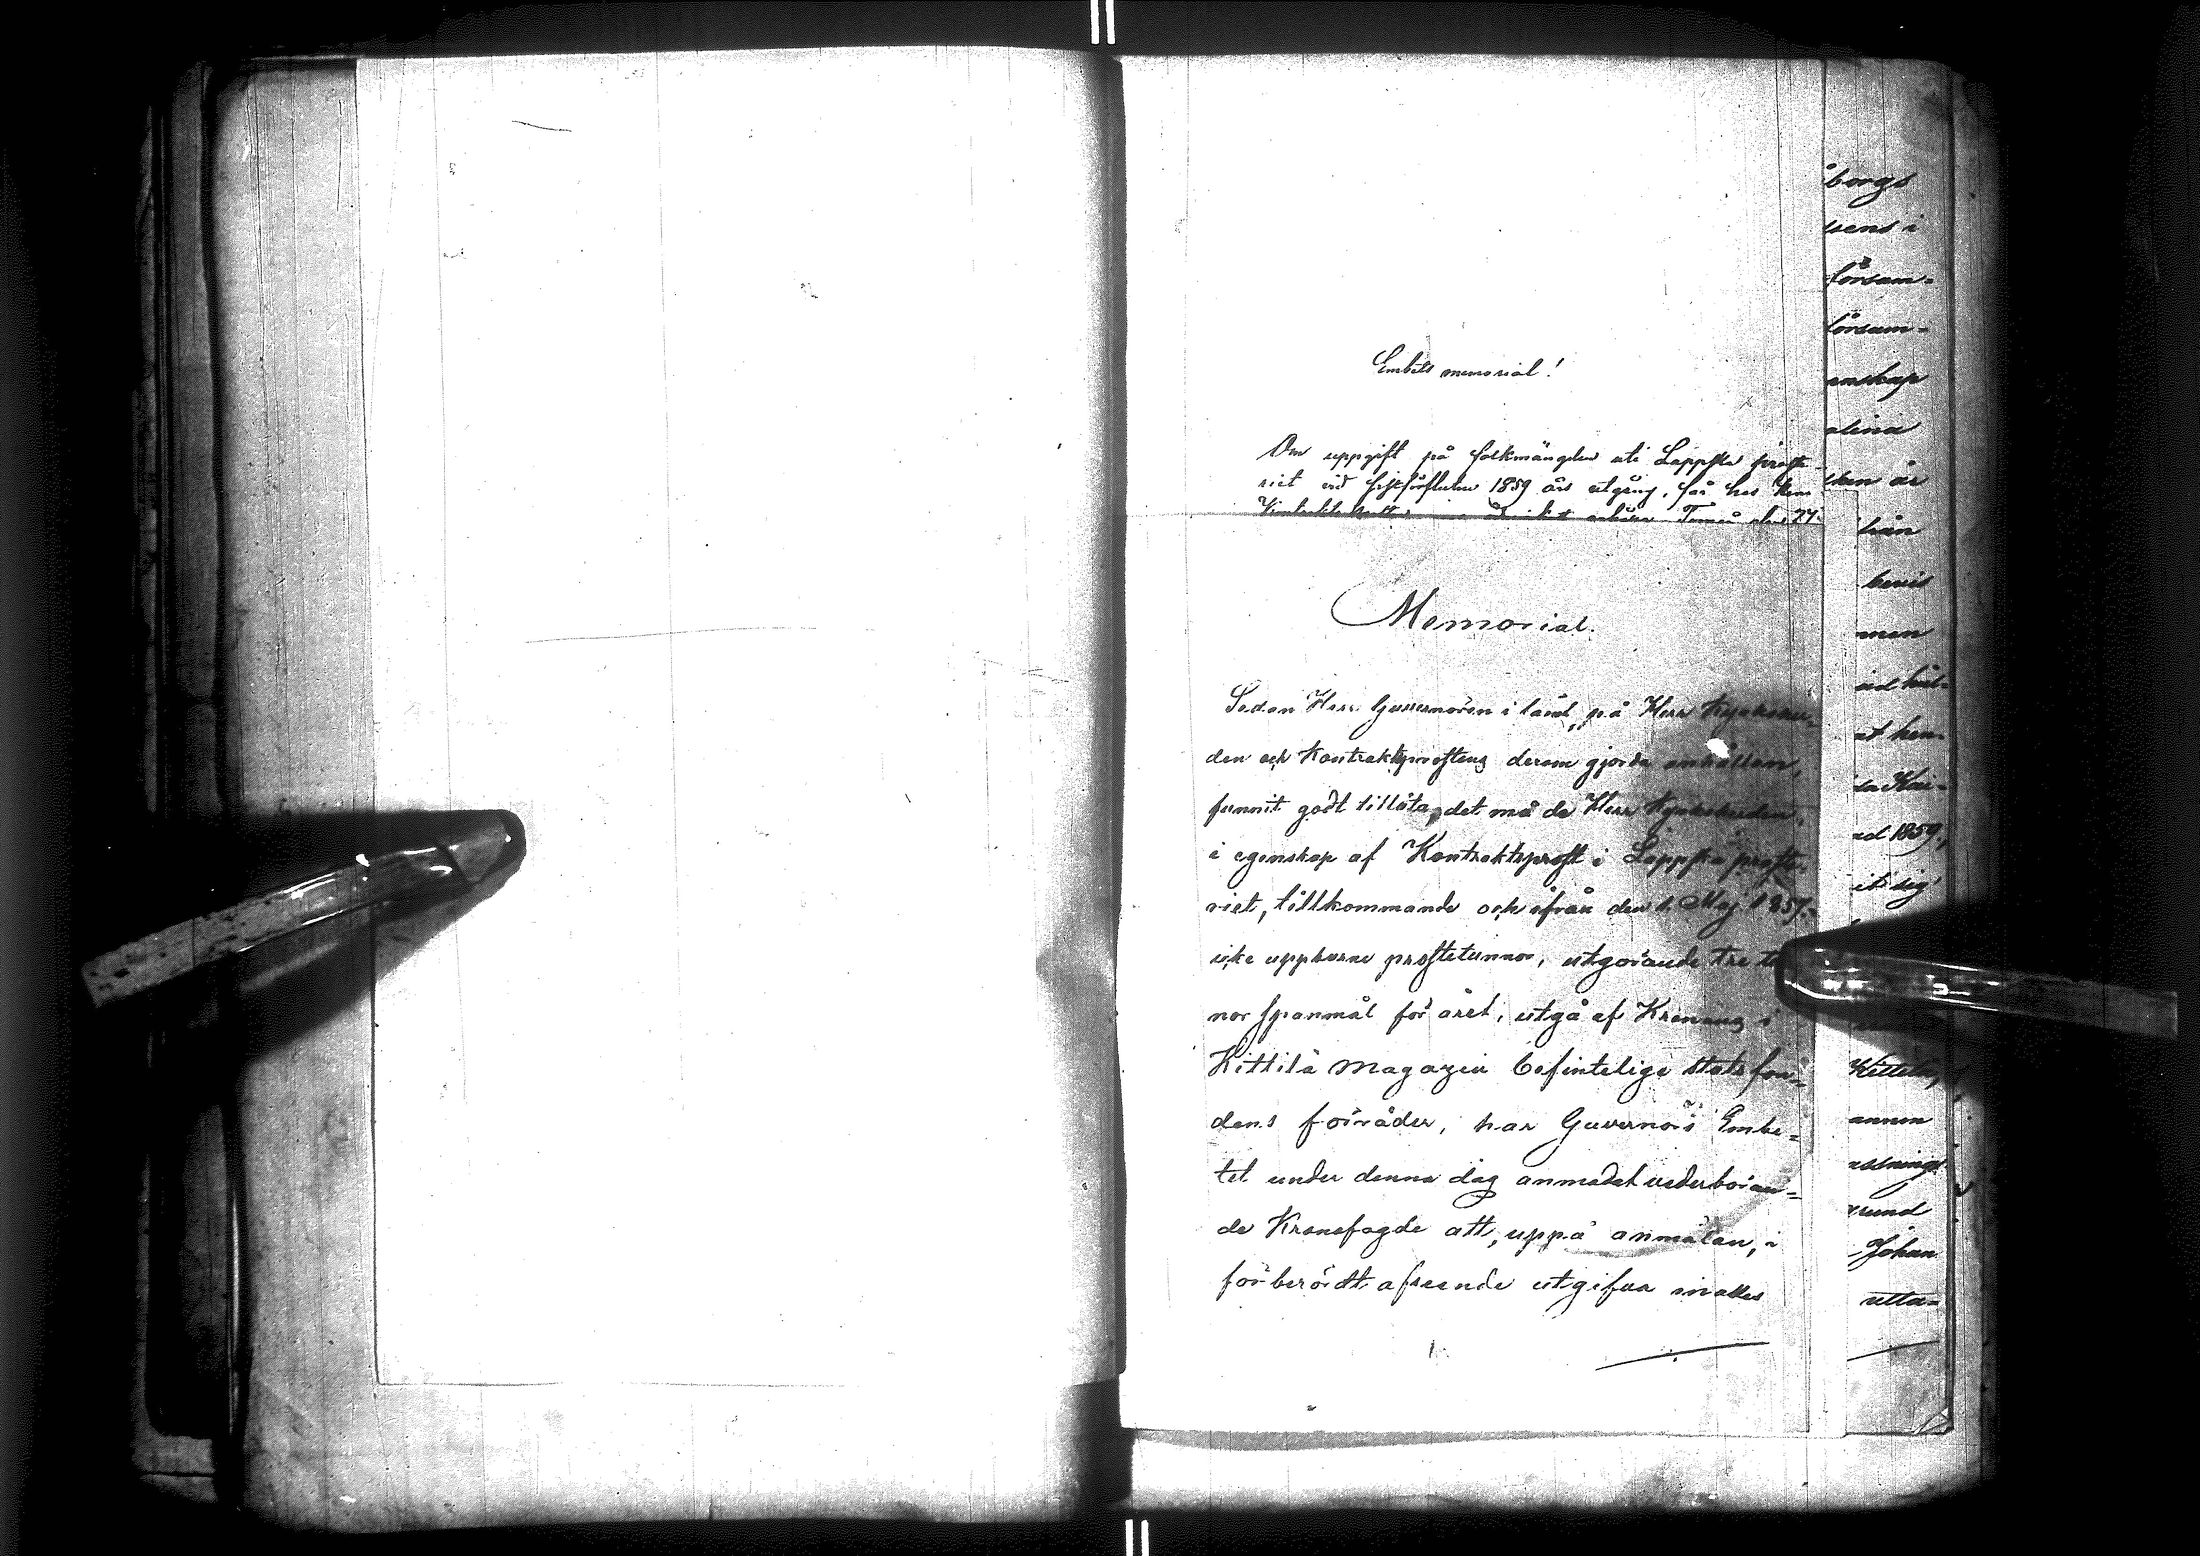 Embets memorial!
Om uppgift på folkmängden uti Lappska proste-
riet vid sistförflutne 1859 års utgång, får hos Herr
Memorial.
Sedan Herr Guvernören i länet, på Herr Kyrkoher-
den och Kontraktsprostens derom gjorda anhållan,
funnit godt tillåta, det må de Herr Kyrkoherden,
i egenskap af Kontraktsprost i Lappska proste-
riet, tillkommande och ifrån den 1. Maj 1857
icke uppburne prostetunnor, utgörande tre
nor spanmål för året, utgå af Kronans i
Kittilä Magazin befintelige statsfon-
dens förråder, har Guvernörs Embe-
tet under denna dag anmodat vederböran-
de Kronofogde att, uppå anmälan, i
förberördt afseende utgifva in alles
borgs
sens i
försam-
försam-
enskap
han
bevis
men
at hen-
1859,
it sig
Kittilä,
annan
grund
Johan
utta-